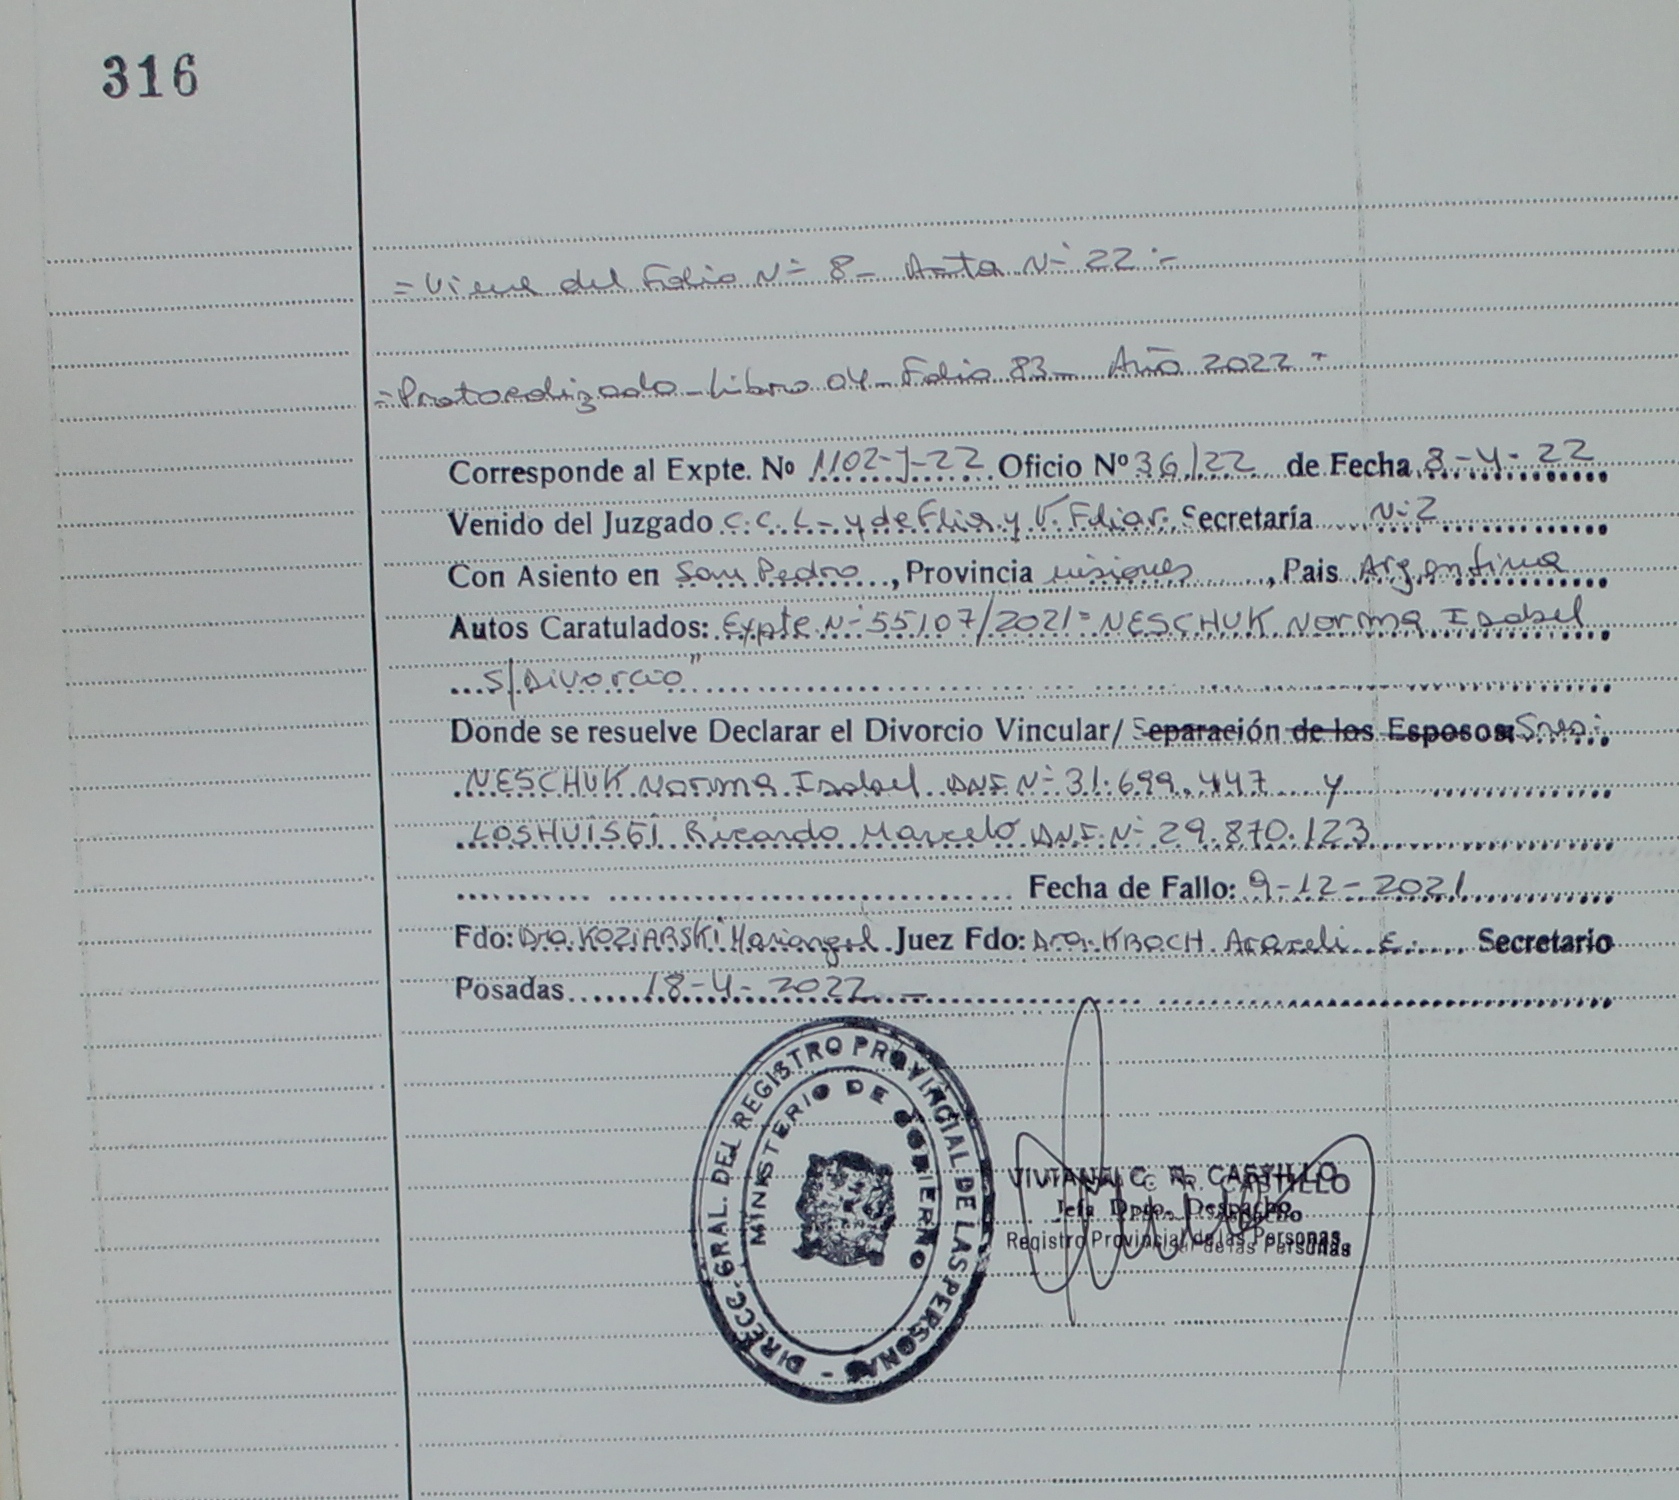 316
= Viene del Folio Nº 8 - Acta Nº 22 :-
= Protocolizado - Libro 04 - Folio 83 - Año 2022 =
Corresponde al Expte. Nº 1102-J-22 Oficio Nº 36/22 de Fecha 8-4-22
Venido del Juzgado C.C.L. y de Flia. y V. Fliar. Secretaría Nº 2
Con Asiento en San Pedro, Provincia Misiones, Pais Argentina
Autos Caratulados: Expte Nº 55107/2021= NESCHUK Norma Isabel
S/Divorcio"
Donde se resuelve Declarar el Divorcio Vincular/ Separación de los Esposos: Sres:
NESCHUK Norma Isabel DNI Nº 31.699.447 y
LOSHUISEI Ricardo Marcelo D.N.I. Nº 29.870.123
Fecha de Fallo: 9-12-2021
Fdo: Dra. KOZIARSKI Mariangel Juez Fdo: Dra. Araceli E. Secretario
Posadas 18-4-2022 -
DIRECC. GRAL. DEL REGISTRO PROVINCIAL DE LAS PERSONAS -
MINISTERIO DE GOBIERNO
VIVIANA C. R. CASTILLO
Jefa Dpto. Despacho
Registro Provincial de las Personas